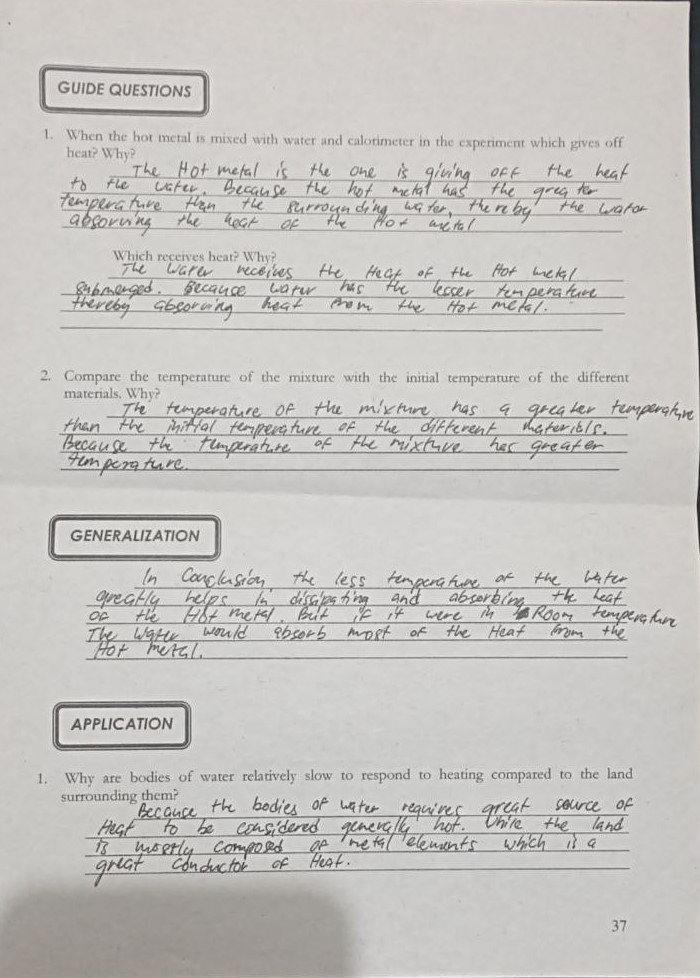 GUIDE QUESTIONS
1. When the hot metal is mixed with water and calorimeter in the experiment which gives off
heat? Why?
The Hot metal is the one is giving off the heat
to the water. Because the hot metal has the greater
temperature than the surrounding water, thereby the water
absorving the heat of the Hot metal
Which receives heat? Why?
The Water receives the Heat of the Hot metal
submerged. Because water has the lesser temperature
thereby absorving heat from the Hot metal.
2. Compare the temperature of the mixture with the initial temperature of the different
materials. Why?
The temperature of the mixture has a greater temperature
than the initial temperature of the different materials.
Because the temperature of the mixture has greater
temperature.
GENERALIZATION
In Conclusion, the less temperature of the water
greatly helps in dissipating and absorbing the heat
of the Hot metal. But if it were in Room temperature
The Water would absorb most of the Heat from the
Hot metal.
APPLICATION
1. Why are bodies of water relatively slow to respond to heating compared to the land
surrounding them?
Because the bodies of water requires great source of
Heat to be considered generally hot. While the land
is mostly composed of metal elements which is a
great conductor of Heat.
37